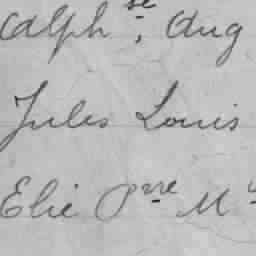 Calph^se, Aug
Jules Louis
Elie P^rre M